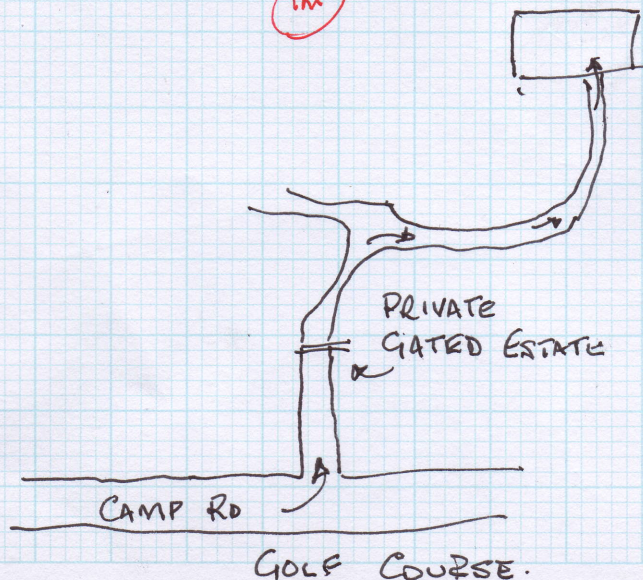 1M
PRIVATE
GATED ESTATE
CAMP RD
GOLF COURSE.